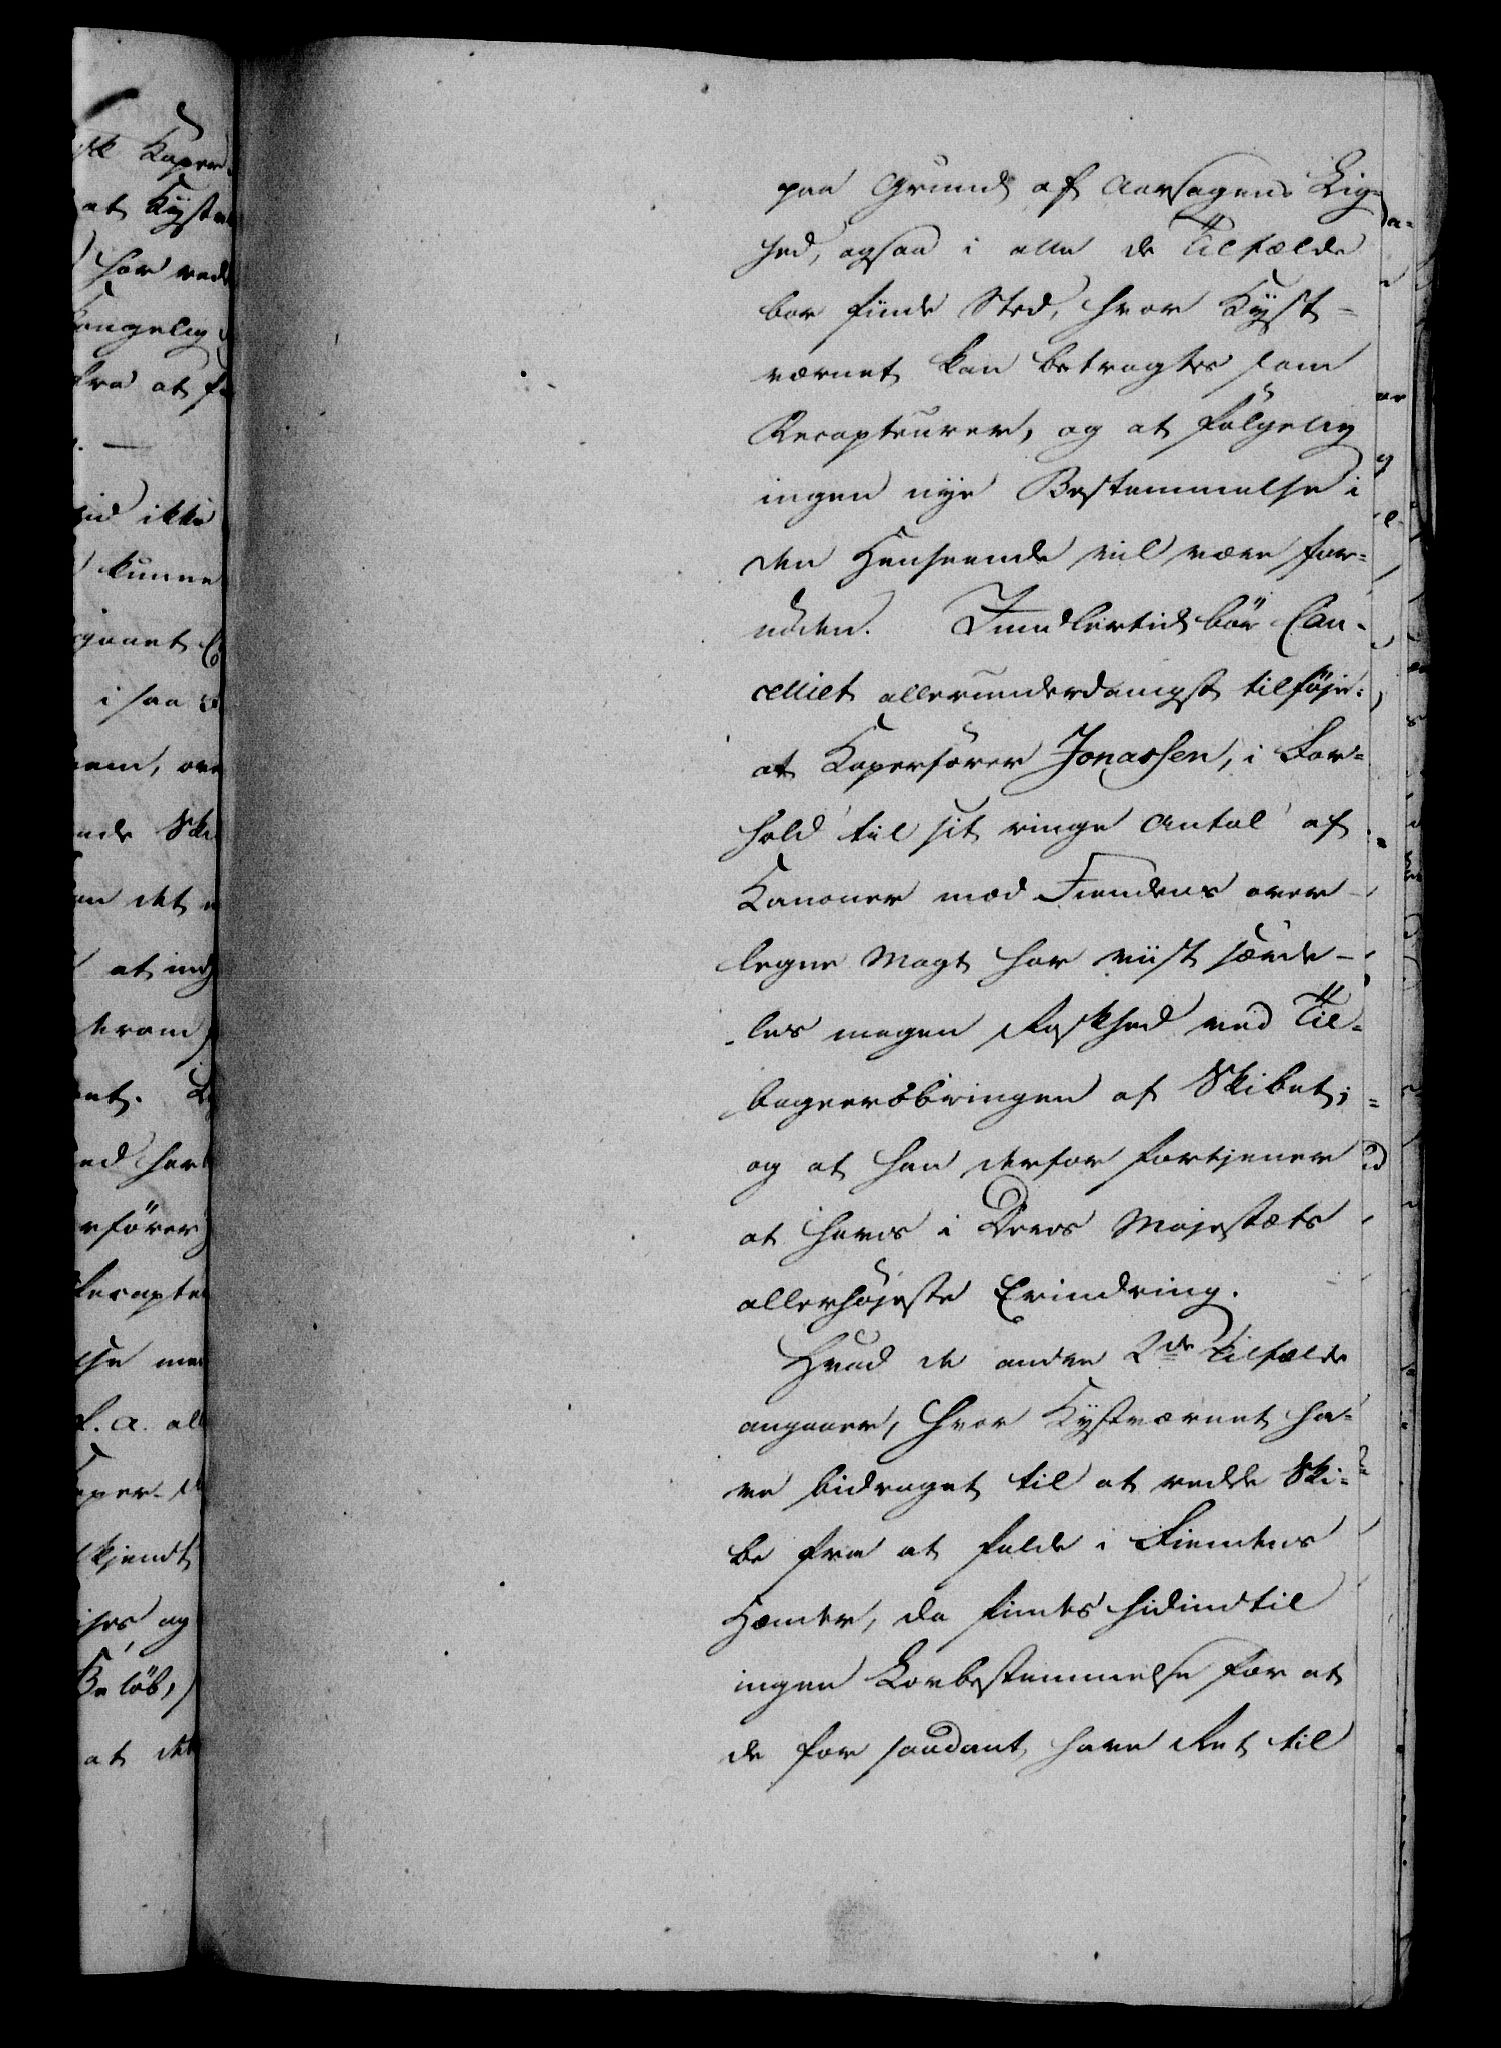 paa Grund af Aarsagens Lig-
hed, ogsaa i alle de Tilfælde
bør finde Sted, hvor Kyst-
værnet kan betragtes som
Recapteurer, og at følgelig
ingen nye Bestemmelse i
den Henseende vil være for-
nøden. Imidlertid bør Can-
celliet allerunderdanigst tilføje:
at Kaperfører Jonassen, i For-
hold til sit ringe Antal af
Kanoner mod Fiendens over-
legne Magt har viist særde-
les megen Raskhed ved Til-
bageerobringen af Skibet;
og at han derfor fortjener
at haves i Deres Majestæts
allerhøjeste Erindring.
Hvad de andre 2de Tilfælde
angaaer, hvor Kystværnet ha-
ve bidraget til at redde Ski-
be fra at falde i Fiendens
Hænder, da findes hidindtil
ingen Lovbestemmelse for at
de for saadant have Ret til